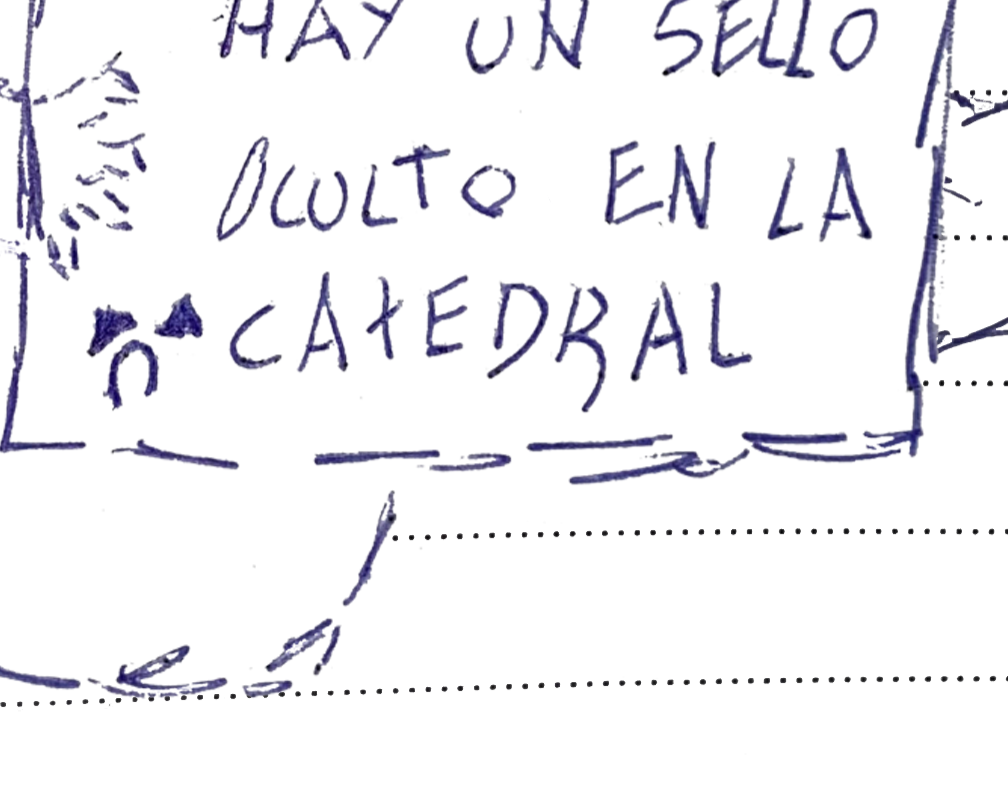 HAY UN SELLO
OCULTO EN LA
CATEDRAL